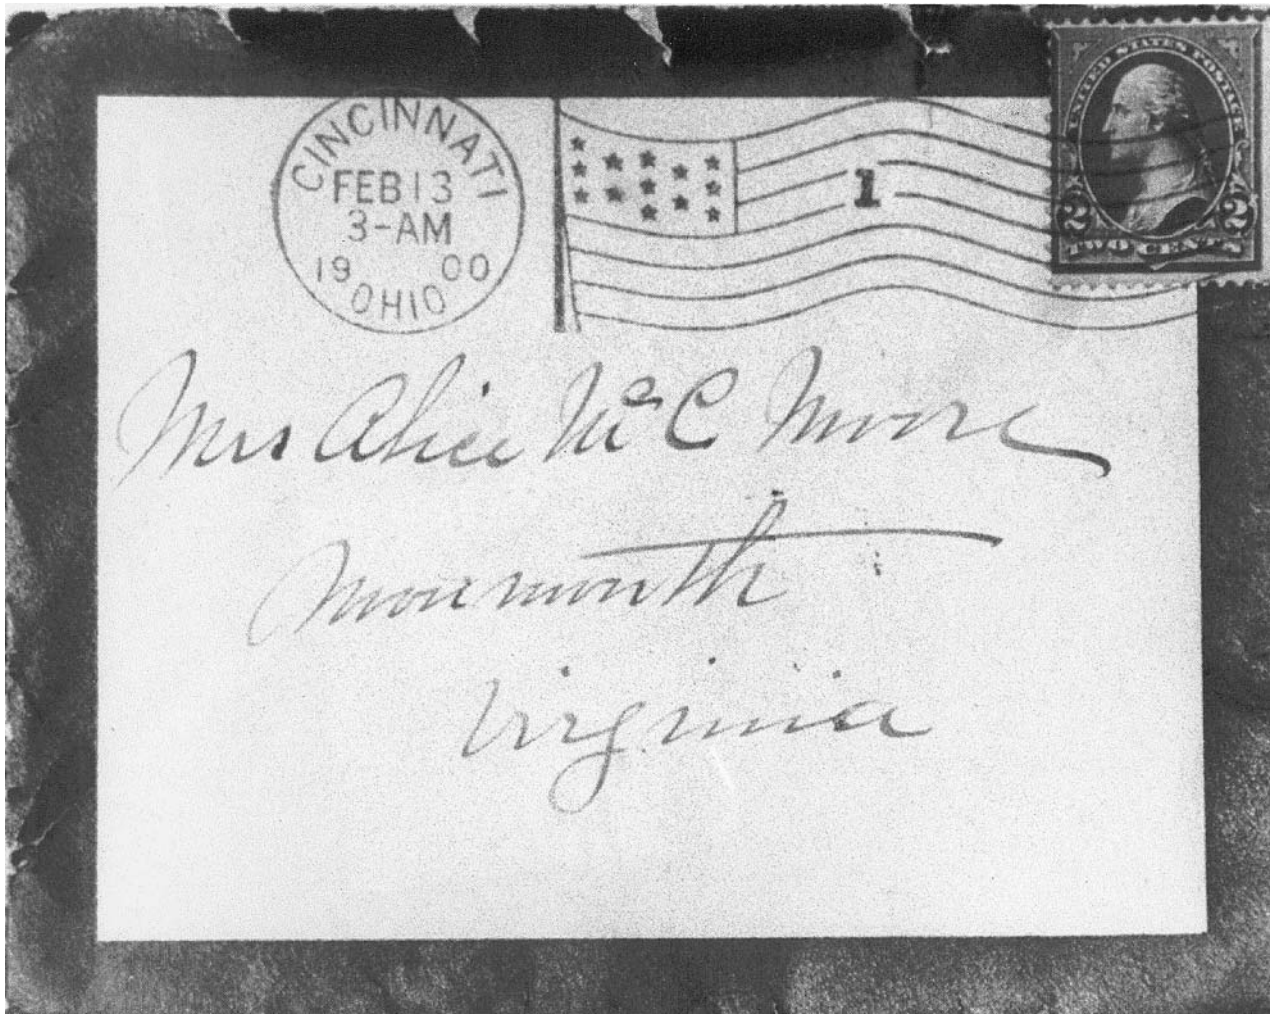 CINCINNATI
FEB 13
3-AM
19 00
OHIO
1
UNITED STATES POSTAGE
2 2
TWO CENTS
Mrs Alice McC Moore
Monmouth
Virginia